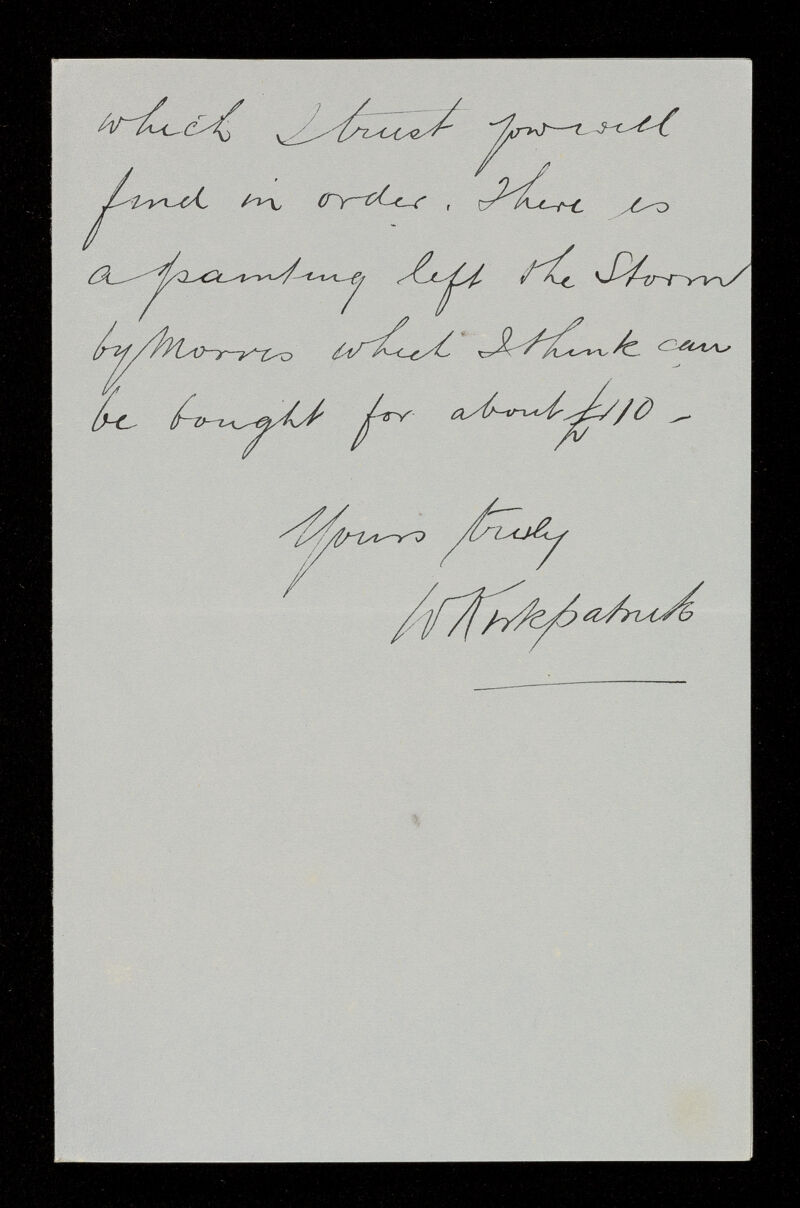 which I trust you will
find in order. There is
a painting left the Storm
by Morris which I think can
be bought for about £110 –
Yours truly
W Kirkpatrick